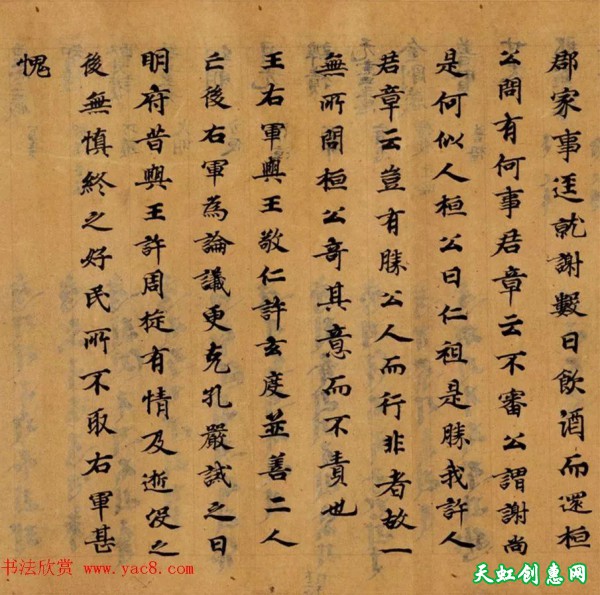 郡家事逕就謝數日飲酒而還桓
公問有何事君章云不審公謂謝尚
是何似人桓公曰仁祖是勝我許人
君章云豈有勝公人而行非者故一
無所問桓公奇其意而不責也
王右軍與王敬仁許玄度並善二人
亡後右軍為論議更克孔嚴誡之曰
明府昔與王許周旋有情及逝没之
後無慎終之好民所不取右軍甚
愧
书法欣赏 www.yac8.com
天虹创惠网